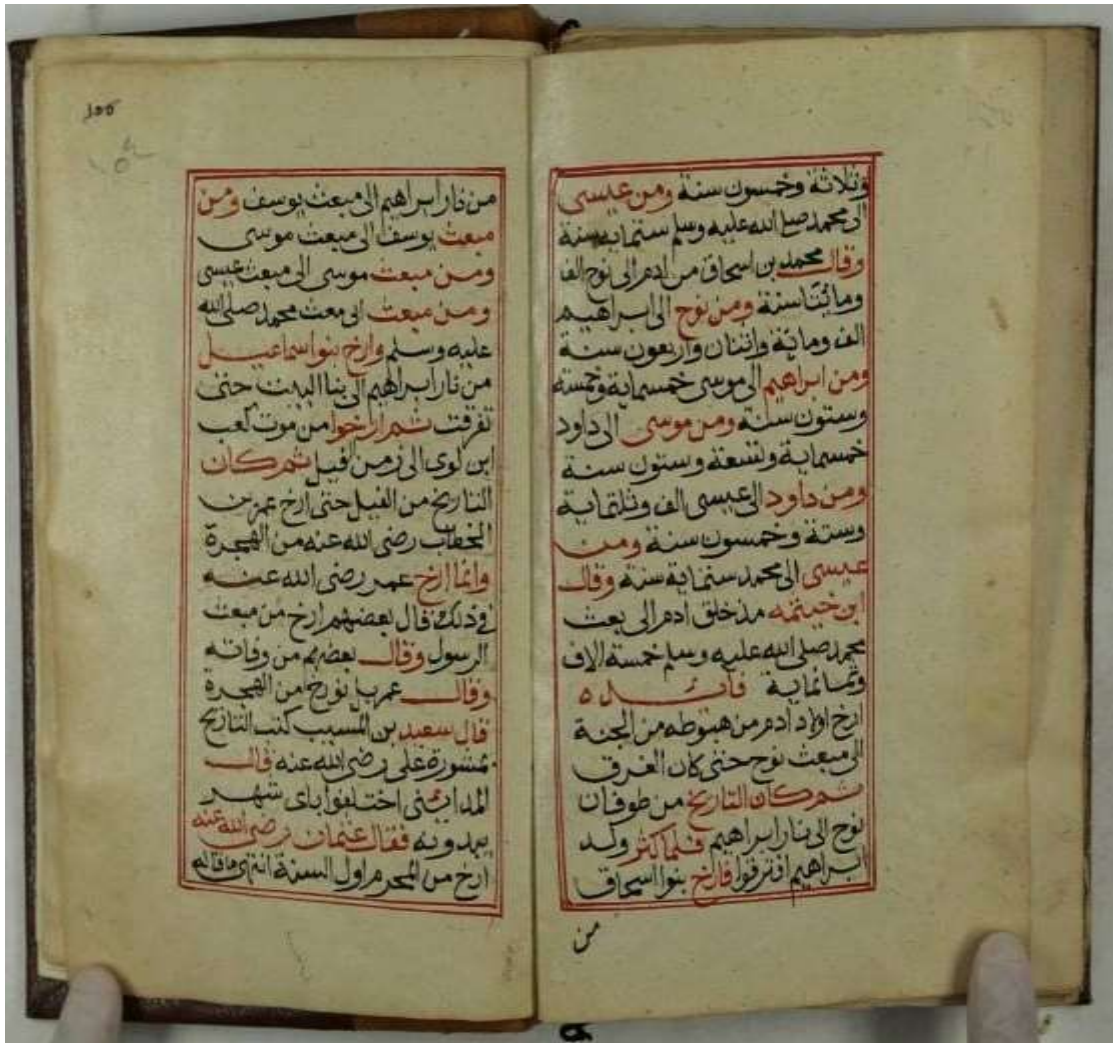 وثلاثة وخمسون سنة ومن عيسى
الى محمد صلى الله عليه وسلم ستماية سنة
وقال محمد بن اسحاق من ادم الى نوح الف
ومائتا سنة ومن نوح الى ابراهيم
الف ومائة واثنتان واربعون سنة
ومن ابراهيم الى موسى خمسماية وخمسة
وستون سنة ومن موسى الى داود
خمسماية وتسعة وستون سنة
ومن داود الى عيسى الف وثلثماية
وستة وخمسون سنة ومن
عيسى الى محمد ستماية سنة وقال
ابن خيثمه مذ خلق ادم الى بعث
محمد صلى الله عليه وسلم خمسة الاف
وثمانماية
ارخ اولاد ادم من هبوطه من الجنة
الى مبعث نوح حتى كان الغرق
ثم كان التاريخ من طوفان
نوح الى نار ابراهيم فلما كثر ولد
ابراهيم افترقوا فارخ بنوا اسحاق
من
من نار ابراهيم الى مبعث يوسف ومن
مبعث يوسف الى مبعث موسى
ومن مبعث موسى الى مبعث عيسى
ومن مبعث الى معث محمد صلى الله
عليه وسلم وارخ بنوا اسماعيل
من نار ابراهيم الى بنا البيت حتى
تفرقت ثم ارخوا من موت كعب
ابن لوى الى زمن الفيل ثم كان
التاريخ من الفيل حتى ارخ عمر بن
الخطاب رضى الله عنه من الهجرة
وانما ارخ عمر رضى الله عنه
فى ذلك قال بعضهم ارخ من مبعث
الرسول وقال بعضهم من وفاته
وقال عمر بل نورخ من الهجرة
قال سعيد بن المسيب كتب التاريخ
بمشورة على رضى الله عنه قال
المداينى اختلفوا باى شهر
يبدونه فقال عثمان رضى الله عنه
ارخ من المحرم اول السنة انتهى ما قاله